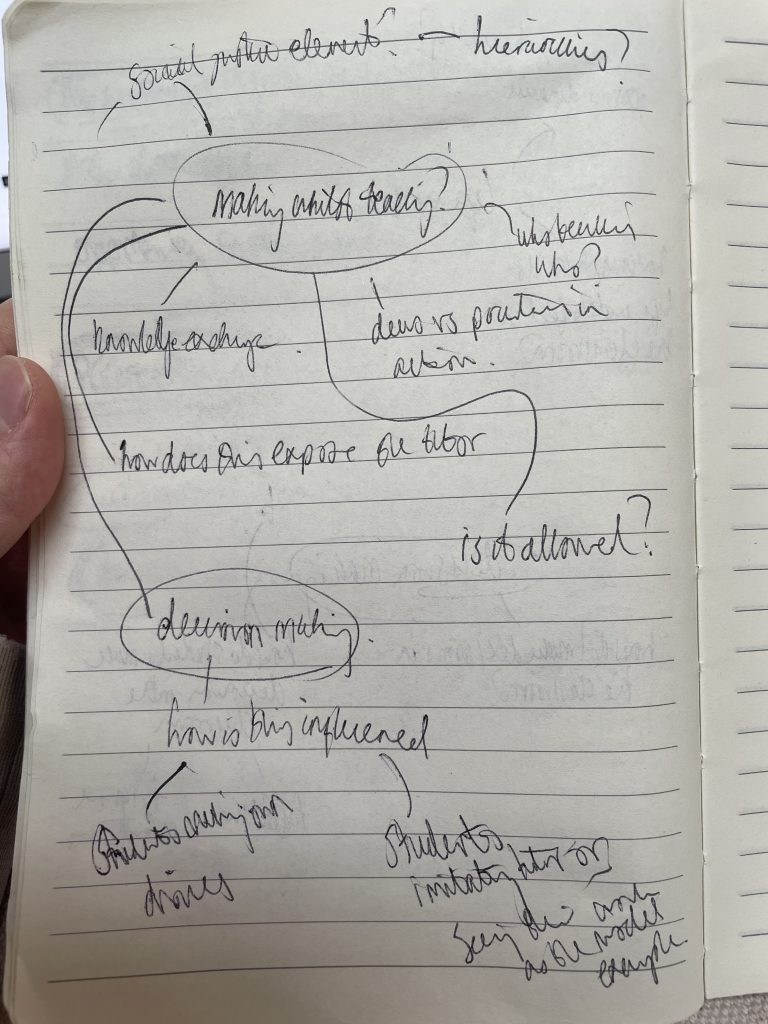 Social justice element? — hierarchies?
Making whilst teaching?
who teaches
who?
knowledge exchange.
demo vs practice in
action.
how does this expose the tutor
is it allowed?
decision making.
how is this influenced
Students making own
choices
Students
imitating tutor or
seeing their work
as the model
example